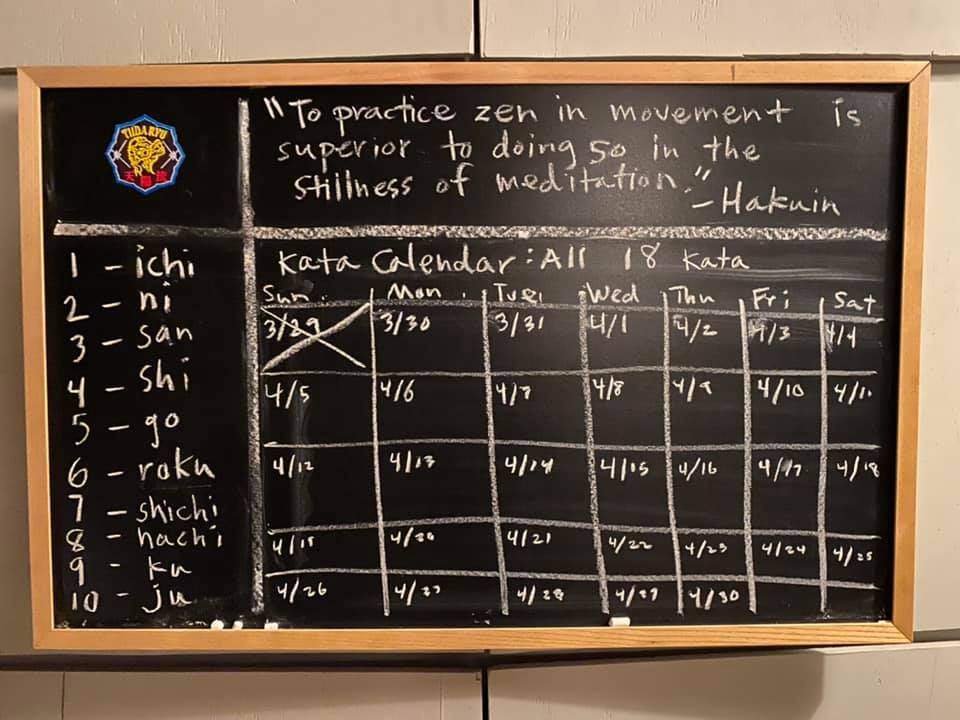 TUDARYU
天
"To practice zen in movement is
superior to doing so in the
stillness of meditation."
- Hakuin
1 - ichi
2 - ni
3 - san
4 - shi
5 - go
6 - roku
7 - shichi
8 - hachi
9 - ku
10 - ju
Kata Calendar: All 18 Kata
Sun. Mon. Tue. Wed Thu Fri Sat
3/29 3/30 3/31 4/1 4/2 4/3 4/4
4/5 4/6 4/7 4/8 4/9 4/10 4/11
4/12 4/13 4/14 4/15 4/16 4/17 4/18
4/20 4/21 4/22 4/23 4/24 4/25
4/26 4/27 4/28 4/29 4/30